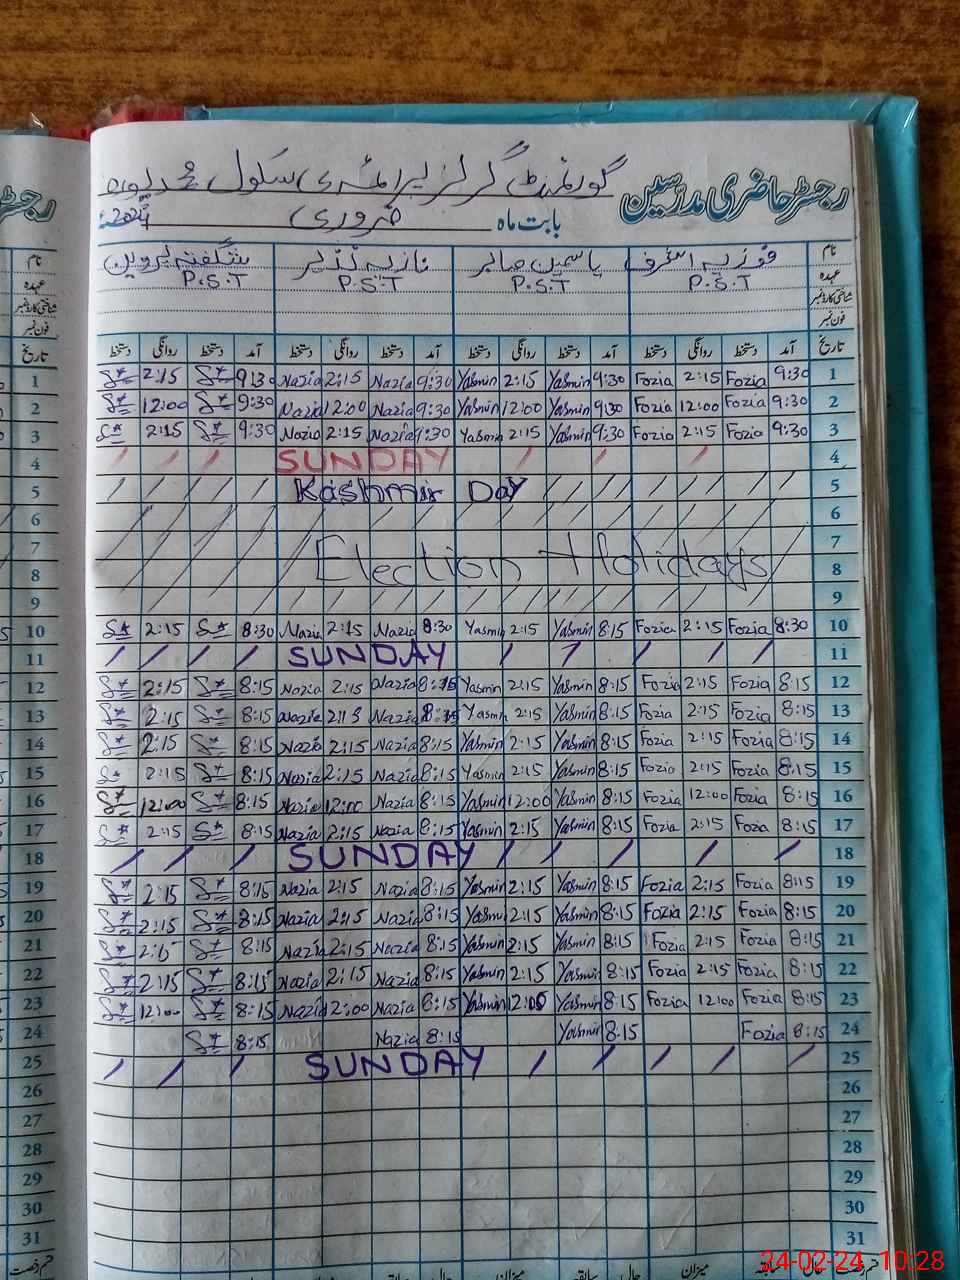 رجسٹر حاضری مدرسین گورنمنٹ گرلز پرائمری سکول محمد پورہ
بابت ماہ فروری 2024ء
نام فوزیہ اشرف یاسمین صابر نازیہ نذیر شگفتہ پروین
عہدہ P.S.T P.S.T P.S.T P.S.T
شناختی کارڈ نمبر
فون نمبر
تاریخ آمد دستخط روانگی دستخط آمد دستخط روانگی دستخط آمد دستخط روانگی دستخط آمد دستخط روانگی دستخط
2:15 9:30 Nazia 2:15 Nazia 9:30 Yasmin 2:15 Yasmin 9:30 Fozia 2:15 Fozia 9:30 1
12:00 9:30 Nazia 12:00 Nazia 9:30 Yasmin 12:00 Yasmin 9:30 Fozia 12:00 Fozia 9:30 2
2:15 9:30 Nazia 2:15 Nazia 9:30 Yasmin 2:15 Yasmin 9:30 Fozia 2:15 Fozia 9:30 3
SUNDAY 4
Kashmir Day 5
6
Election Holidays 7
8
9
2:15 8:30 Nazia 2:15 Nazia 8:30 Yasmin 2:15 Yasmin 8:15 Fozia 2:15 Fozia 8:30 10
SUNDAY 11
2:15 8:15 Nazia 2:15 Nazia 8:15 Yasmin 2:15 Yasmin 8:15 Fozia 2:15 Fozia 8:15 12
2:15 8:15 Nazia 2:15 Nazia 8:15 Yasmin 2:15 Yasmin 8:15 Fozia 2:15 Fozia 8:15 13
2:15 8:15 Nazia 2:15 Nazia 8:15 Yasmin 2:15 Yasmin 8:15 Fozia 2:15 Fozia 8:15 14
2:15 8:15 Nazia 2:15 Nazia 8:15 Yasmin 2:15 Yasmin 8:15 Fozia 2:15 Fozia 8:15 15
12:00 8:15 Nazia 12:00 Nazia 8:15 Yasmin 12:00 Yasmin 8:15 Fozia 12:00 Fozia 8:15 16
2:15 8:15 Nazia 2:15 Nazia 8:15 Yasmin 2:15 Yasmin 8:15 Fozia 2:15 Fozia 8:15 17
SUNDAY 18
2:15 8:15 Nazia 2:15 Nazia 8:15 Yasmin 2:15 Yasmin 8:15 Fozia 2:15 Fozia 8:15 19
2:15 8:15 Nazia 2:15 Nazia 8:15 Yasmin 2:15 Yasmin 8:15 Fozia 2:15 Fozia 8:15 20
2:15 8:15 Nazia 2:15 Nazia 8:15 Yasmin 2:15 Yasmin 8:15 Fozia 2:15 Fozia 8:15 21
2:15 8:15 Nazia 2:15 Nazia 8:15 Yasmin 2:15 Yasmin 8:15 Fozia 2:15 Fozia 8:15 22
12:00 8:15 Nazia 2:00 Nazia 8:15 Yasmin 12:00 Yasmin 8:15 Fozia 12:00 Fozia 8:15 23
8:15 Nazia 8:15 Yasmin 8:15 Fozia 8:15 24
SUNDAY 25
26
27
28
29
30
31
24-02-24 10:28